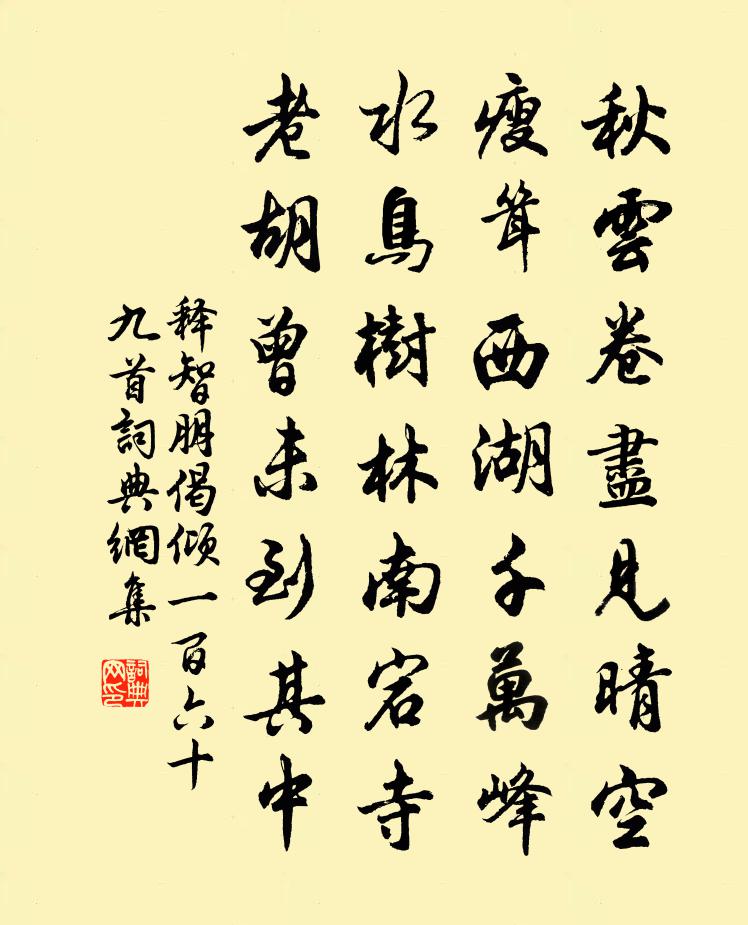 秋雲卷盡見晴空
瘦耸西湖千萬峰
水鳥樹林南宕寺
老胡曾未到其中
释智朋偈傾一百六十
九首詞典網集
詞典网印